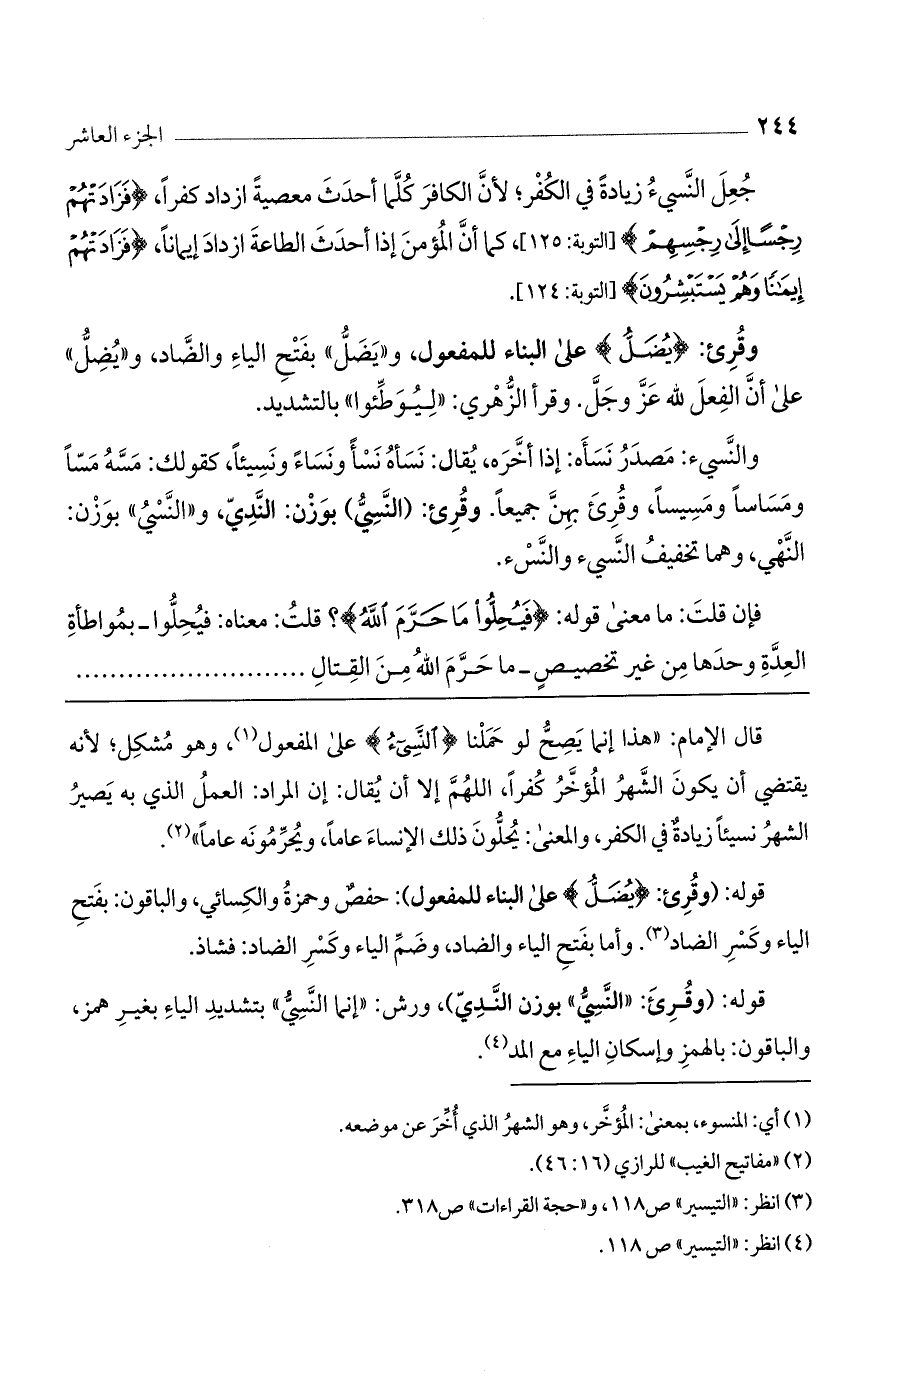 ٢٤٤ ـــــــــــــــــــــــــــــــــــــــــــــــــــــــــــــ الجزء العاشر
جُعِلَ النَّسيءُ زيادةً في الكُفْر؛ لأنَّ الكافرَ كُلَّما أحدَثَ معصيةً ازداد كفراً، ﴿فَزَادَتْهُمْ
رِجْسًا إِلَىٰ رِجْسِهِمْ﴾ [التوبة: ١٢٥]، كما أنَّ المُؤمنَ إذا أحدَثَ الطاعةَ ازدادَ إيماناً، ﴿فَزَادَتْهُمْ
إِيمَٰنًا وَهُمْ يَسْتَبْشِرُونَ﴾ [التوبة: ١٢٤].
وقُرِئ: ﴿يُضَلُّ﴾ علىٰ البناء للمفعول، و«يَضَلُّ» بفَتْحِ الياءِ والضَّاد، و«يُضِلُّ»
علىٰ أنَّ الفِعلَ لله عَزَّ وجَلَّ. وقرأ الزُّهْري: «لِيُوَطِّئوا» بالتشديد.
والنَّسيء: مَصدَرُ نَسَأَه: إذا أخَّرَه، يُقال: نَسَأهُ نَسْأً ونَسَاءً ونَسِيئاً، كقولك: مَسَّهُ مَسّاً
ومَسَاساً ومَسِيساً، وقُرِئَ بهِنَّ جميعاً. وقُرِئ: (النَّسِيُّ) بوَزْن: النَّدِيّ، و«النَّسْيُ» بوَزْن:
النَّهْي، وهما تخفيفُ النَّسيء والنَّسْء.
فإن قلتَ: ما معنىٰ قوله: ﴿فَيُحِلُّوا۟ مَا حَرَّمَ ٱللَّهُ﴾؟ قلتُ: معناه: فيُحِلُّوا ـ بمُواطأةِ
العِدَّةِ وحدَها مِن غير تخصيصٍ ـ ما حَرَّمَ اللهُ مِنَ القِتالِ ...........................
قال الإمام: «هذا إنما يَصِحُّ لو حَمَلْنا ﴿ٱلنَّسِىٓءُ﴾ علىٰ المفعول(١)، وهو مُشكِل؛ لأنه
يقتضي أن يكونَ الشَّهرُ المُؤخَّرُ كُفراً، اللهُمَّ إلا أن يُقال: إن المراد: العملُ الذي به يَصيرُ
الشهرُ نسيئاً زيادةٌ في الكفر، والمعنىٰ: يُحِلُّونَ ذلك الإنساءَ عاماً، ويُحرِّمُونَه عاماً»(٢).
قوله: (وقُرِئ: ﴿يُضَلُّ﴾ علىٰ البناء للمفعول): حفصٌ وحمزةُ والكِسائي، والباقون: بفَتحِ
الياء وكَسْرِ الضاد(٣). وأما بفَتحِ الياء والضاد، وضَمِّ الياء وكَسْرِ الضاد: فشاذ.
قوله: (وقُرِئَ: «النَّسِيُّ» بوزن النَّدِيّ)، ورش: «إنما النَّسِيُّ» بتشديدِ الياءِ بغيرِ همز،
والباقون: بالهمزِ وإسكانِ الياءِ مع المد(٤).
(١) أي: المنسوء، بمعنىٰ: المُؤخَّر، وهو الشهرُ الذي أُخِّرَ عن موضعه.
(٢) «مفاتيح الغيب» للرازي (١٦: ٤٦).
(٣) انظر: «التيسير» ص١١٨، و«حجة القراءات» ص٣١٨.
(٤) انظر: «التيسير» ص١١٨.